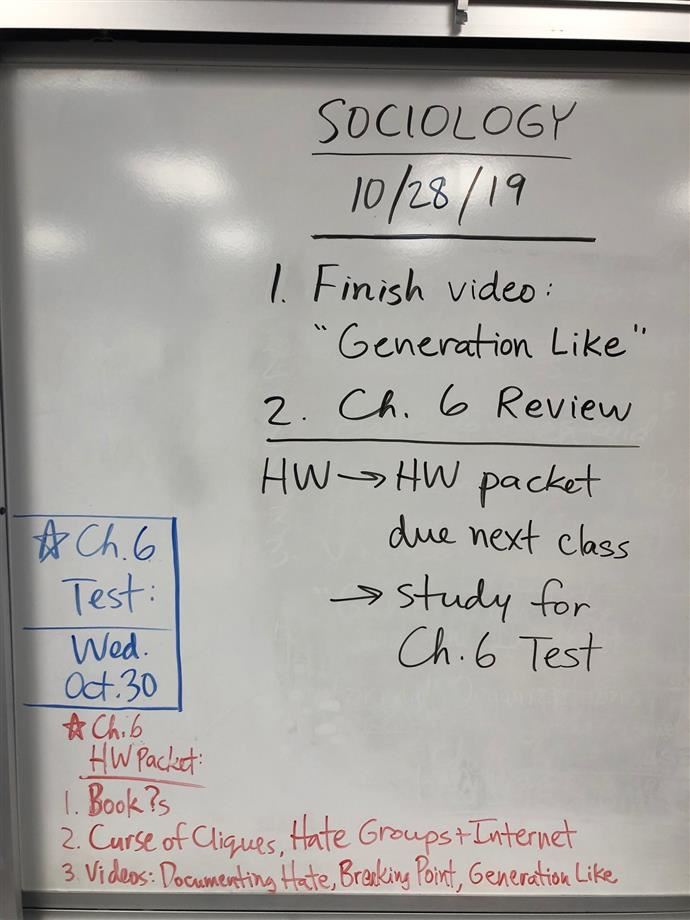 SOCIOLOGY
10/28/19
1. Finish video:
"Generation Like"
2. Ch. 6 Review
HW → HW packet
due next class
→ study for
Ch. 6 Test
☆ Ch. 6
Test:
Wed.
Oct. 30
☆ Ch. 6
HW Packet:
1. Book ?s
2. Curse of Cliques, Hate Groups + Internet
3. Videos: Documenting Hate, Breaking Point, Generation Like